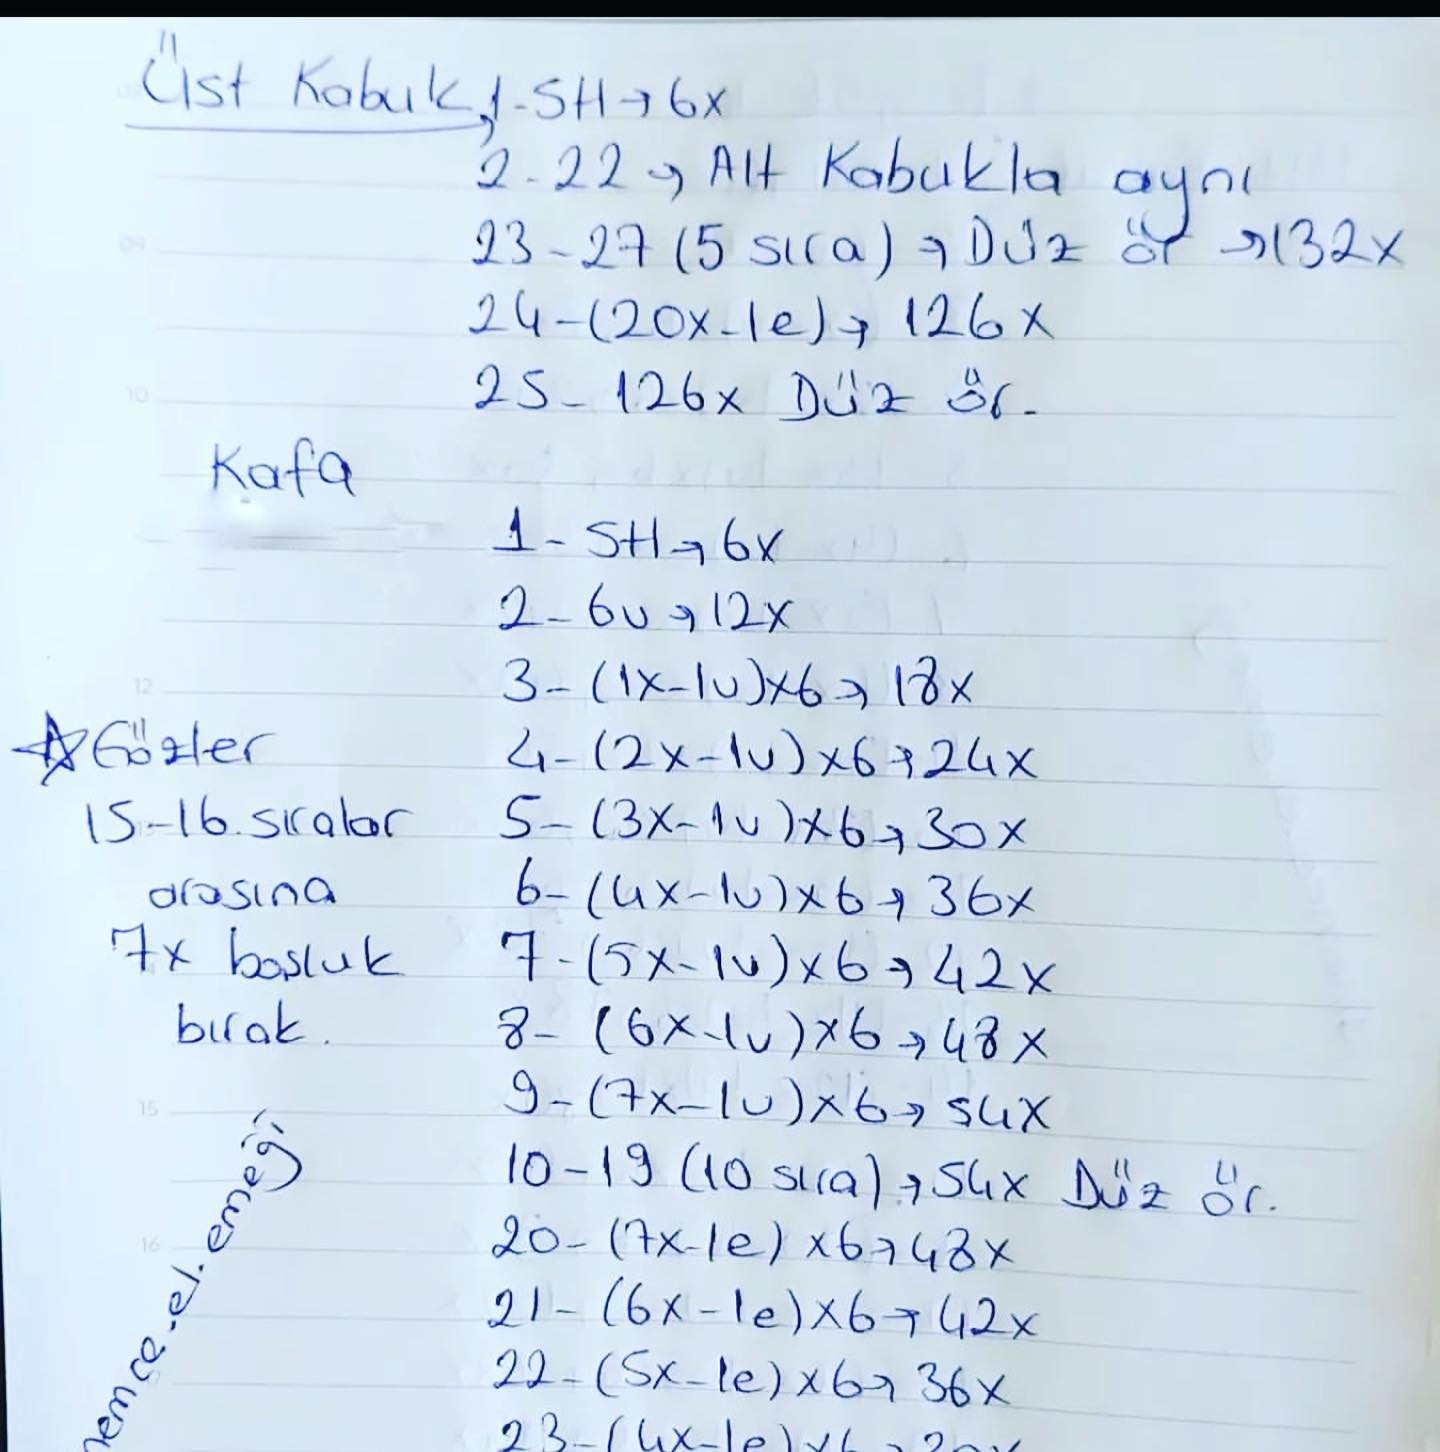 Üst Kabuk, 1-SH→6x
2-22→ Alt Kabukla aynı
23-27 (5 sıra)→Düz ör →132x
24-(20x-1e)→ 126x
25- 126x Düz ör.
Kafa
1- SH→6x
2- 6v→12x
3- (1x-1v)x6→ 18x
4-(2x-1v)x6→24x
5- (3x-1v)x6→30x
6-(4x-1v)x6→36x
7-(5x-1v)x6→42x
8- (6x-1v)x6→48x
9-(7x-1v)x6→54x
10-19 (10 sıra)→54x Düz ör.
20-(7x-1e)x6→48x
21- (6x-1e)x6→42x
22-(5x-1e)x6→36x
23-(4x-1e)x6→30x
☆Gözler
15-16.sıralar
arasına
7x boşluk
bırak.
.el.emeği
09
10
12
15
16